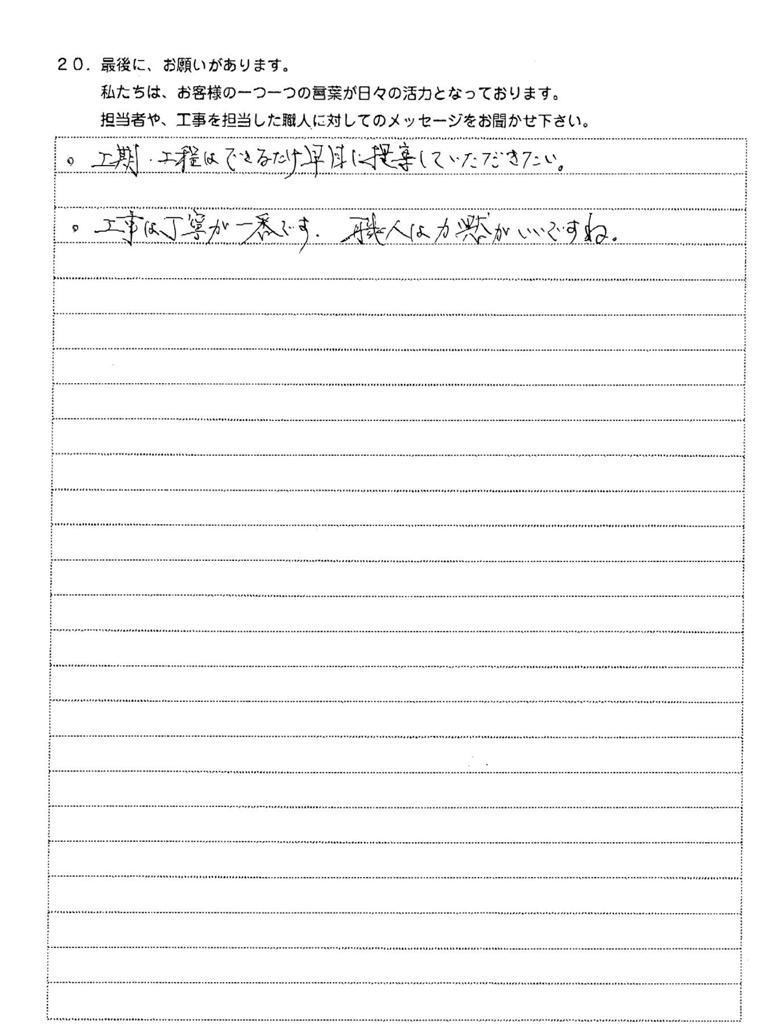 20．最後に、お願いがあります。
私たちは、お客様の一つ一つの言葉が日々の活力となっております。
担当者や、工事を担当した職人に対してのメッセージをお聞かせ下さい。
。工期・工程はできるだけ早目に提示していただきたい。
。工事は丁寧が一番です. 職人は寡黙がいいですね。